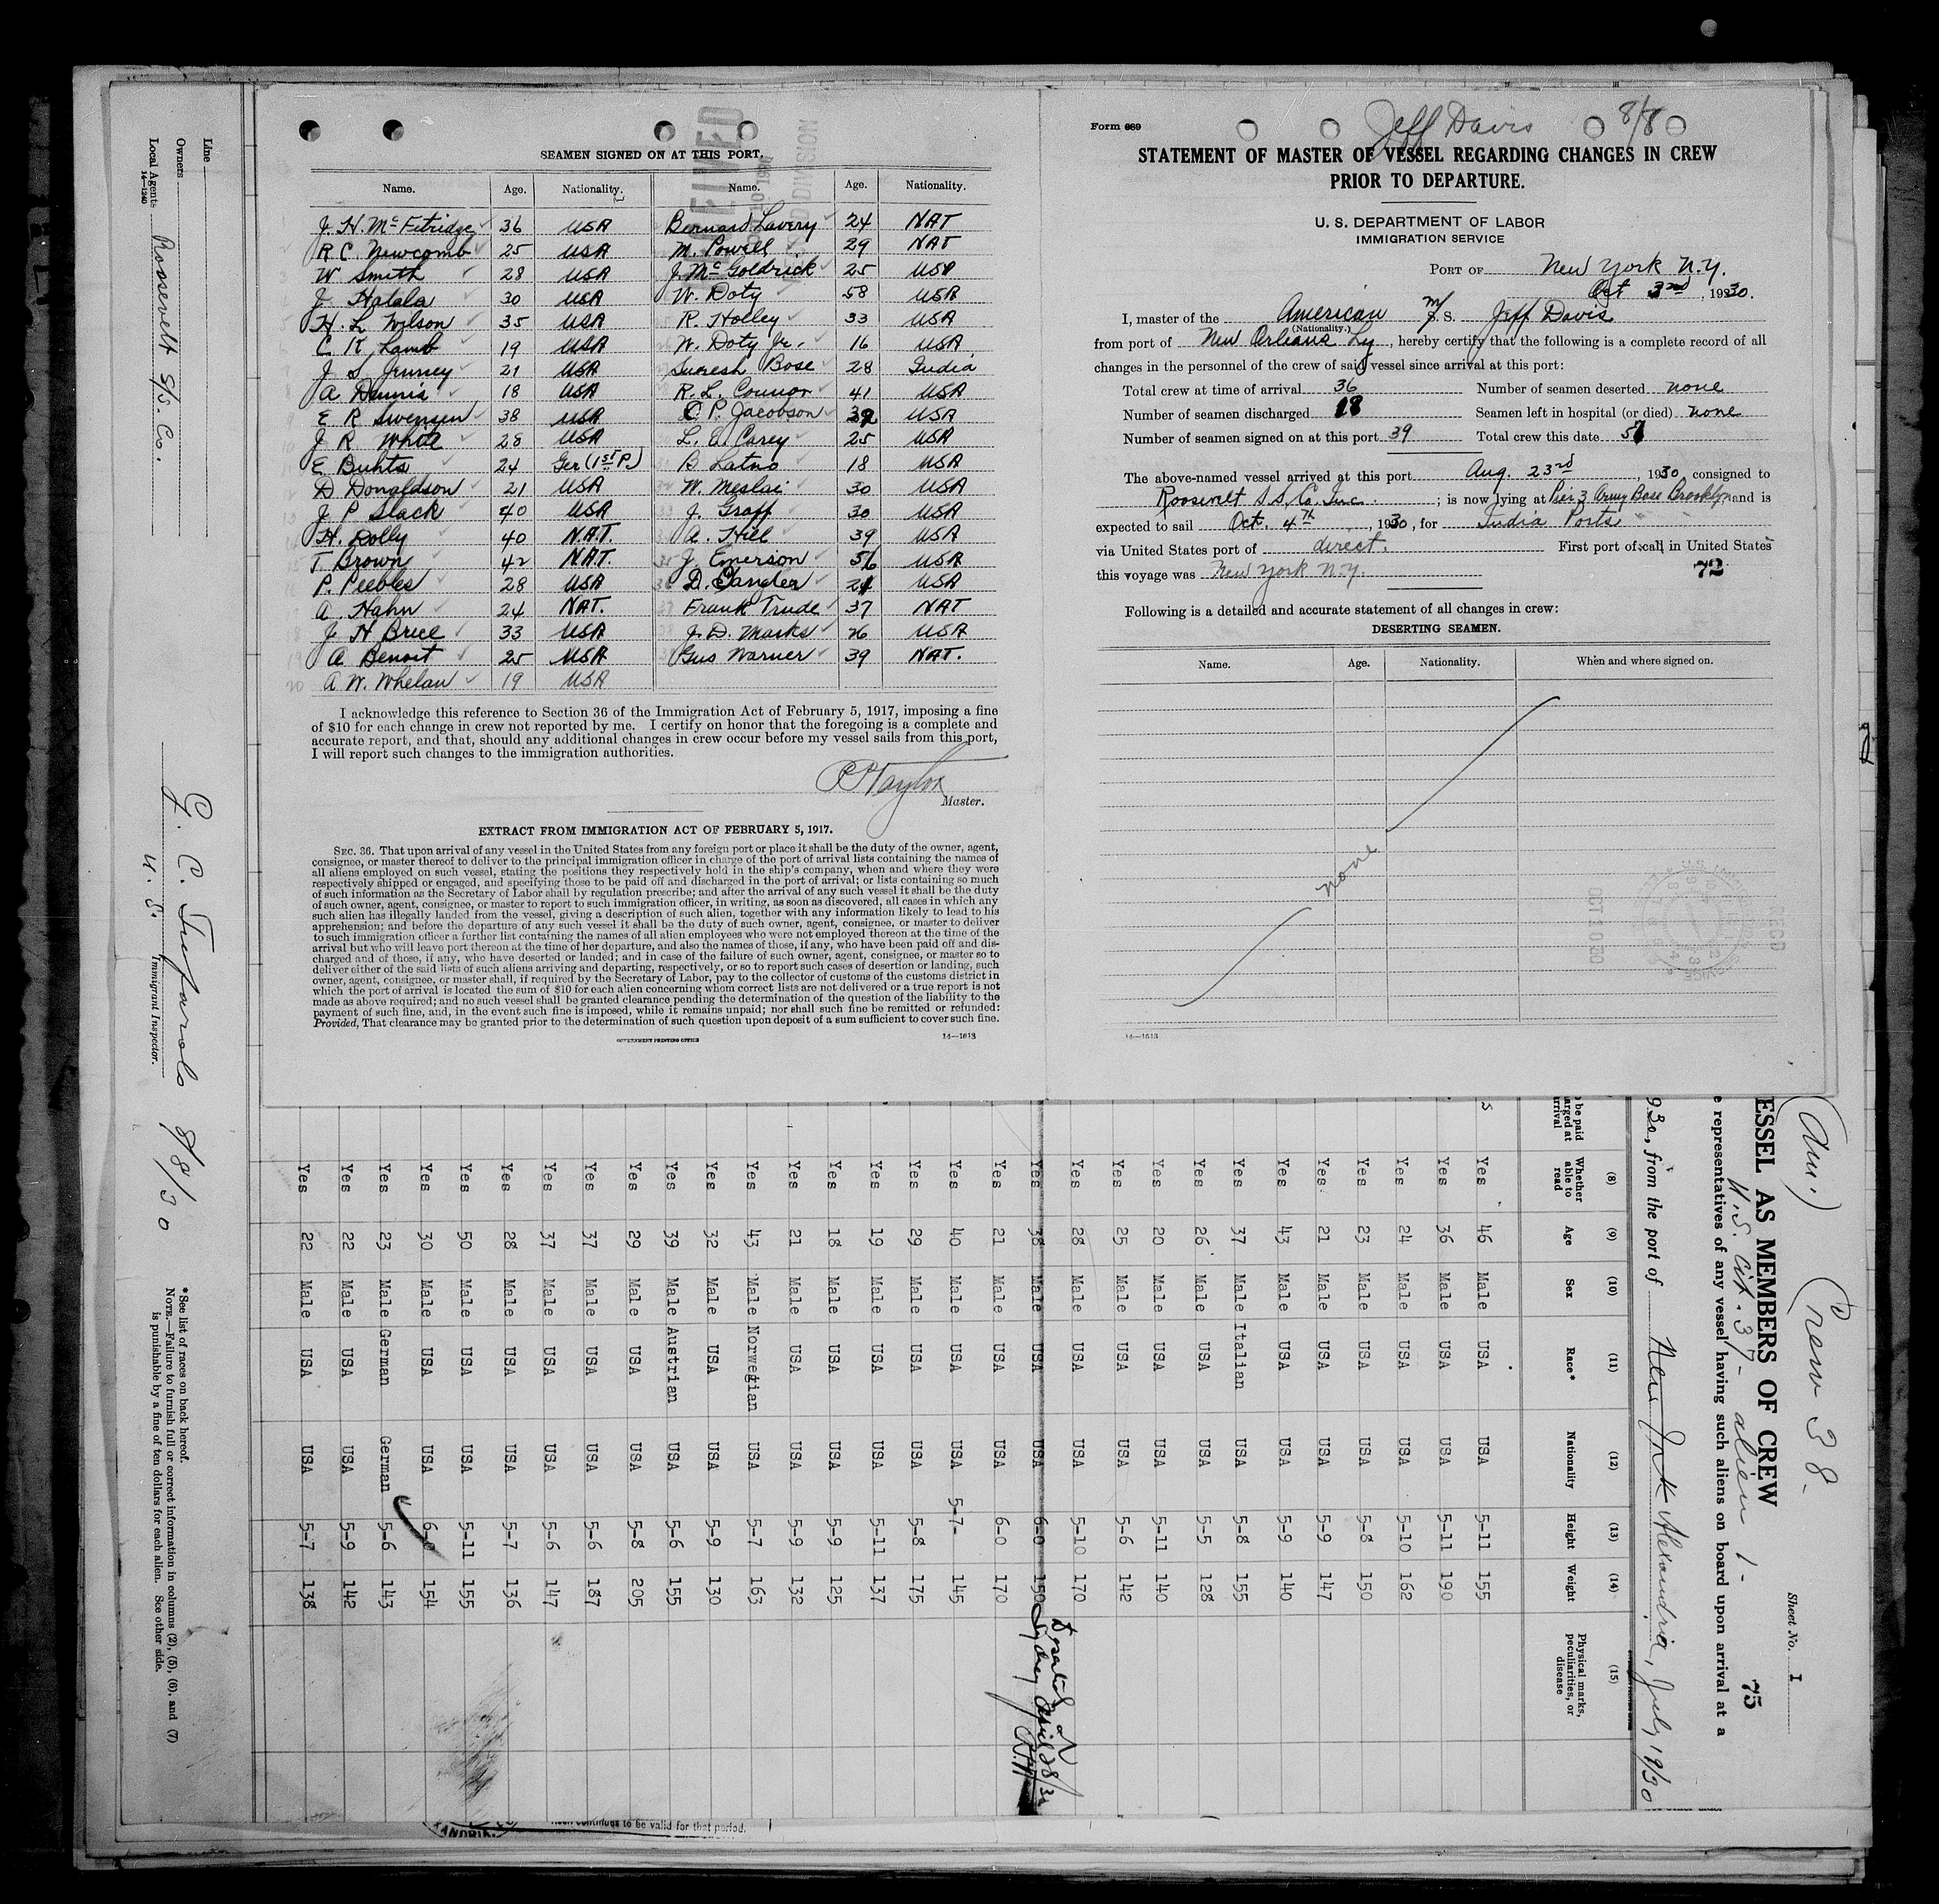 Line
Owners
Local Agents Roosevelt S/S. Co.
14—1240
U. S. Immigrant Inspector.
8/8/30
*See list of races on back hereof.
NOTE.—Failure to furnish full or correct information in columns (2), (5), (6), and (7)
is punishable by a fine of ten dollars for each alien. See other side.
SEAMEN SIGNED ON AT THIS PORT.
Name. Age. Nationality. Name. Age. Nationality.
J. H. McFitridge 36 USA Bernard Lavery 24 NAT
R C. Newcomb 25 USA M. Powell 29 NAT
W Smith 28 USA J. McGoldrick 25 USA
J. Hatala 30 USA W. Doty 58 USA
H. L Wilson 35 USA R. Holley 33 USA
C K, Lamb 19 USA W. Doty Jr. 16 USA
J. S. Jenney 21 USA Suresh Bose 28 India
A Dennis 18 USA R. L. Connor 41 USA
E R Swensen 38 USA C P. Jacobson 39 USA
J R White 28 USA L. E. Carey 25 USA
E Buhts 24 Ger (1st P.) B Latno 18 USA
D Donaldson 21 USA W. Meslai 30 USA
J. P Slack 40 USA J. Graff 30 USA
H. Rolly 40 NAT. A. Hill 39 USA
T. Brown 42 NAT. J. Emerson 56 USA
P. Peebles 28 USA D. Gangler 21 USA
A. Hahn 24 NAT. Frank Trude 37 NAT
J H Brice 33 USA J. D. Marks 26 USA
A Benoit 25 USA Gus Warner 39 NAT.
20 A W. Whelan 19 USA
I acknowledge this reference to Section 36 of the Immigration Act of February 5, 1917, imposing a fine
of $10 for each change in crew not reported by me. I certify on honor that the foregoing is a complete and
accurate report, and that, should any additional changes in crew occur before my vessel sails from this port,
I will report such changes to the immigration authorities.
Taylor
Master.
EXTRACT FROM IMMIGRATION ACT OF FEBRUARY 5, 1917.
SEC. 36. That upon arrival of any vessel in the United States from any foreign port or place it shall be the duty of the owner, agent,
consignee, or master thereof to deliver to the principal immigration officer in charge of the port of arrival lists containing the names of
all aliens employed on such vessel, stating the positions they respectively hold in the ship's company, when and where they were
respectively shipped or engaged, and specifying those to be paid off and discharged in the port of arrival; or lists containing so much
of such information as the Secretary of Labor shall by regulation prescribe; and after the arrival of any such vessel it shall be the duty
of such owner, agent, consignee, or master to report to such immigration officer, in writing, as soon as discovered, all cases in which any
such alien has illegally landed from the vessel, giving a description of such alien, together with any information likely to lead to his
apprehension; and before the departure of any such vessel it shall be the duty of such owner, agent, consignee, or master to deliver
to such immigration officer a further list containing the names of all alien employees who were not employed thereon at the time of the
arrival but who will leave port thereon at the time of her departure, and also the names of those, if any, who have been paid off and dis-
charged and of those, if any, who have deserted or landed; and in case of the failure of such owner, agent, consignee, or master so to
deliver either of the said lists of such aliens arriving and departing, respectively, or so to report such cases of desertion or landing, such
owner, agent, consignee, or master shall, if required by the Secretary of Labor, pay to the collector of customs of the customs district in
which the port of arrival is located the sum of $10 for each alien concerning whom correct lists are not delivered or a true report is not
made as above required; and no such vessel shall be granted clearance pending the determination of the question of the liability to the
payment of such fine, and, in the event such fine is imposed, while it remains unpaid; nor shall such fine be remitted or refunded:
Provided, That clearance may be granted prior to the determination of such question upon deposit of a sum sufficient to cover such fine.
GOVERNMENT PRINTING OFFICE 14—1613
Form 669 Jeff Davis 8/8
STATEMENT OF MASTER OF VESSEL REGARDING CHANGES IN CREW
PRIOR TO DEPARTURE.
U. S. DEPARTMENT OF LABOR
IMMIGRATION SERVICE
PORT OF New York N.Y.
Oct 3rd, 1930.
I, master of the American M/S. Jeff Davis
(Nationality.)
from port of New Orleans La, hereby certify that the following is a complete record of all
changes in the personnel of the crew of said vessel since arrival at this port:
Total crew at time of arrival 36 Number of seamen deserted none
Number of seamen discharged 18 Seamen left in hospital (or died) none
Number of seamen signed on at this port 39 Total crew this date 57
The above-named vessel arrived at this port Aug. 23rd, 1930, consigned to
Roosevelt S.S. Co. Inc. ; is now lying at Pier 3 Army Base Brooklyn and is
expected to sail Oct. 4th, 1930, for India Ports
via United States port of direct. First port of call in United States
this voyage was New York N.Y. 72
Following is a detailed and accurate statement of all changes in crew:
DESERTING SEAMEN.
Name. Age. Nationality. When and where signed on.
none
OCT 10 30
RECD
14—1613
(Am.) Crew 38-
Sheet No. I
75
ESSEL AS MEMBERS OF CREW
U.S. Cit. 37- alien 1-
e representatives of any vessel having such aliens on board upon arrival at a
930, from the port of New York Alexandria, July 19/30
(8) (9) (10) (11) (12) (13) (14) (15)
be paid
arged at
arrival
Whether able to read Age Sex Race* Nationality Height Weight Physical marks, peculiarities, or disease
Yes 46 Male USA USA 5-11 155
Yes 36 Male USA USA 5-11 190
Yes 24 Male USA USA 5-10 162
Yes 23 Male USA USA 5-8 150
Yes 21 Male USA USA 5-9 147
Yes 43 Male USA USA 5-9 140
Yes 37 Male Italian USA 5-8 155
Yes 26 Male USA USA 5-5 128
Yes 20 Male USA USA 5-11 140
Yes 25 Male USA USA 5-6 142
Yes 28 Male USA USA 5-10 170
Yes 38 Male USA USA 6-0 150
Yes 21 Male USA USA 6-0 170
Yes 40 Male USA USA 5-7- 145
Yes 29 Male USA USA 5-8 175
Yes 19 Male USA USA 5-11 137
Yes 18 Male USA USA 5-9 125
Yes 21 Male USA USA 5-9 132
Yes 43 Male Norwegian USA 5-7 163
Yes 32 Male USA USA 5-9 130
Yes 39 Male Austrian USA 5-6 155
Yes 29 Male USA USA 5-8 205
Yes 37 Male USA USA 5-6 187
Yes 37 Male USA USA 5-6 147
Yes 28 Male USA USA 5-7 136
Yes 50 Male USA USA 5-11 155
Yes 30 Male USA USA 6-0 154
Yes 23 Male German German 5-6 143
Yes 22 Male USA USA 5-9 142
Yes 22 Male USA USA 5-7 138
continues to be valid for that period.